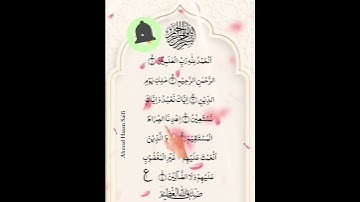 بسم الله الرحمن الرحيم
اَلْحَمْدُ لِلّٰهِ رَبِّ الْعٰلَمِيْنَ ۝
الرَّحْمٰنِ الرَّحِيْمِ ۝ مٰلِكِ يَوْمِ
الدِّيْنِ ۝ اِيَّاكَ نَعْبُدُ وَ اِيَّاكَ
نَسْتَعِيْنُ ۝ اِهْدِنَا الصِّرَاطَ
الْمُسْتَقِيْمَ الَّذِيْنَ
اَنْعَمْتَ عَلَيْهِمْ غَيْرِ الْمَغْضُوْبِ
عَلَيْهِمْ وَلَا الضَّآلِّيْنَ ۝ ع
صدق الله العظيم
Ahmad Hasan Saifi